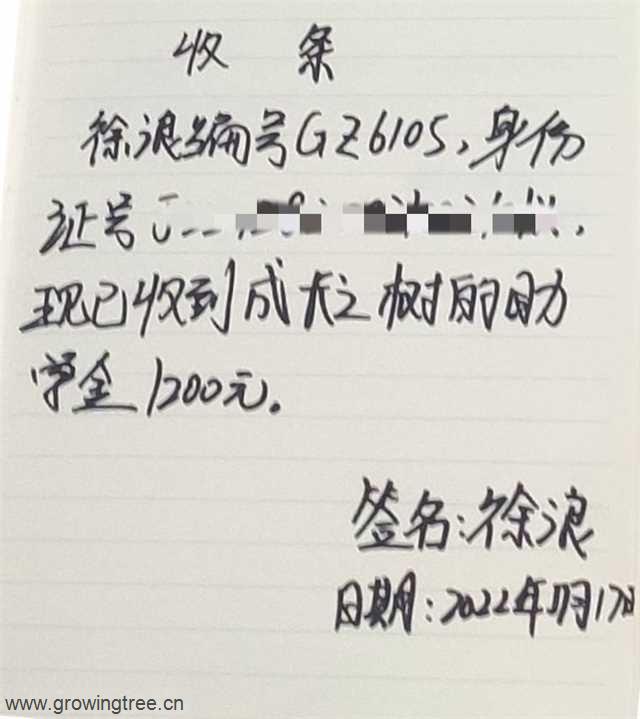 收 条
徐浪编号GZ6105,身份
证号
现已收到成长之树的助
学金1200元.
签名:徐浪
日期:2022年11月17日
www.growingtree.cn